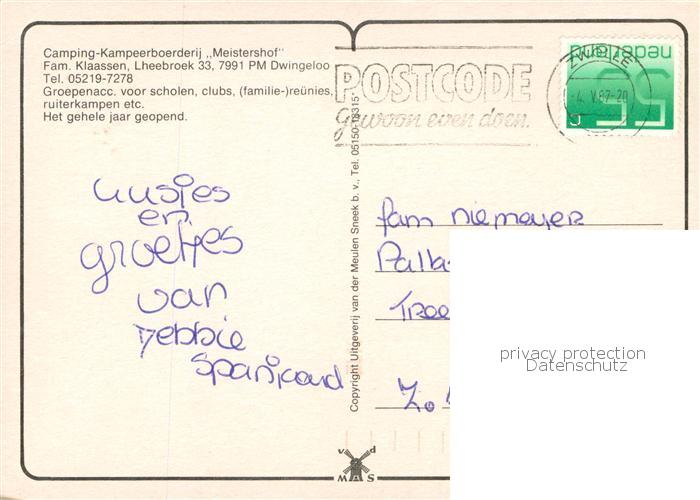 Camping-Kampeerboerderij „Meistershof"
Fam. Klaassen, Lheebroek 33, 7991 PM Dwingeloo
Tel. 05219-7278
Groepenacc. voor scholen, clubs, (familie-)reünies,
ruiterkampen etc.
Het gehele jaar geopend.
POSTCODE
Gewoon even doen.
ZWOLLE
-4. V.87-20
nederland
55
c
Copyright Uitgeverij van der Meulen Sneek b.v., Tel. 05150-18315*
kusjes
en
groetjes
van
Debbie
Spanjaard
fam niemeyer
Palla
Tree
Z.
privacy protection
Datenschutz
v d
MAS